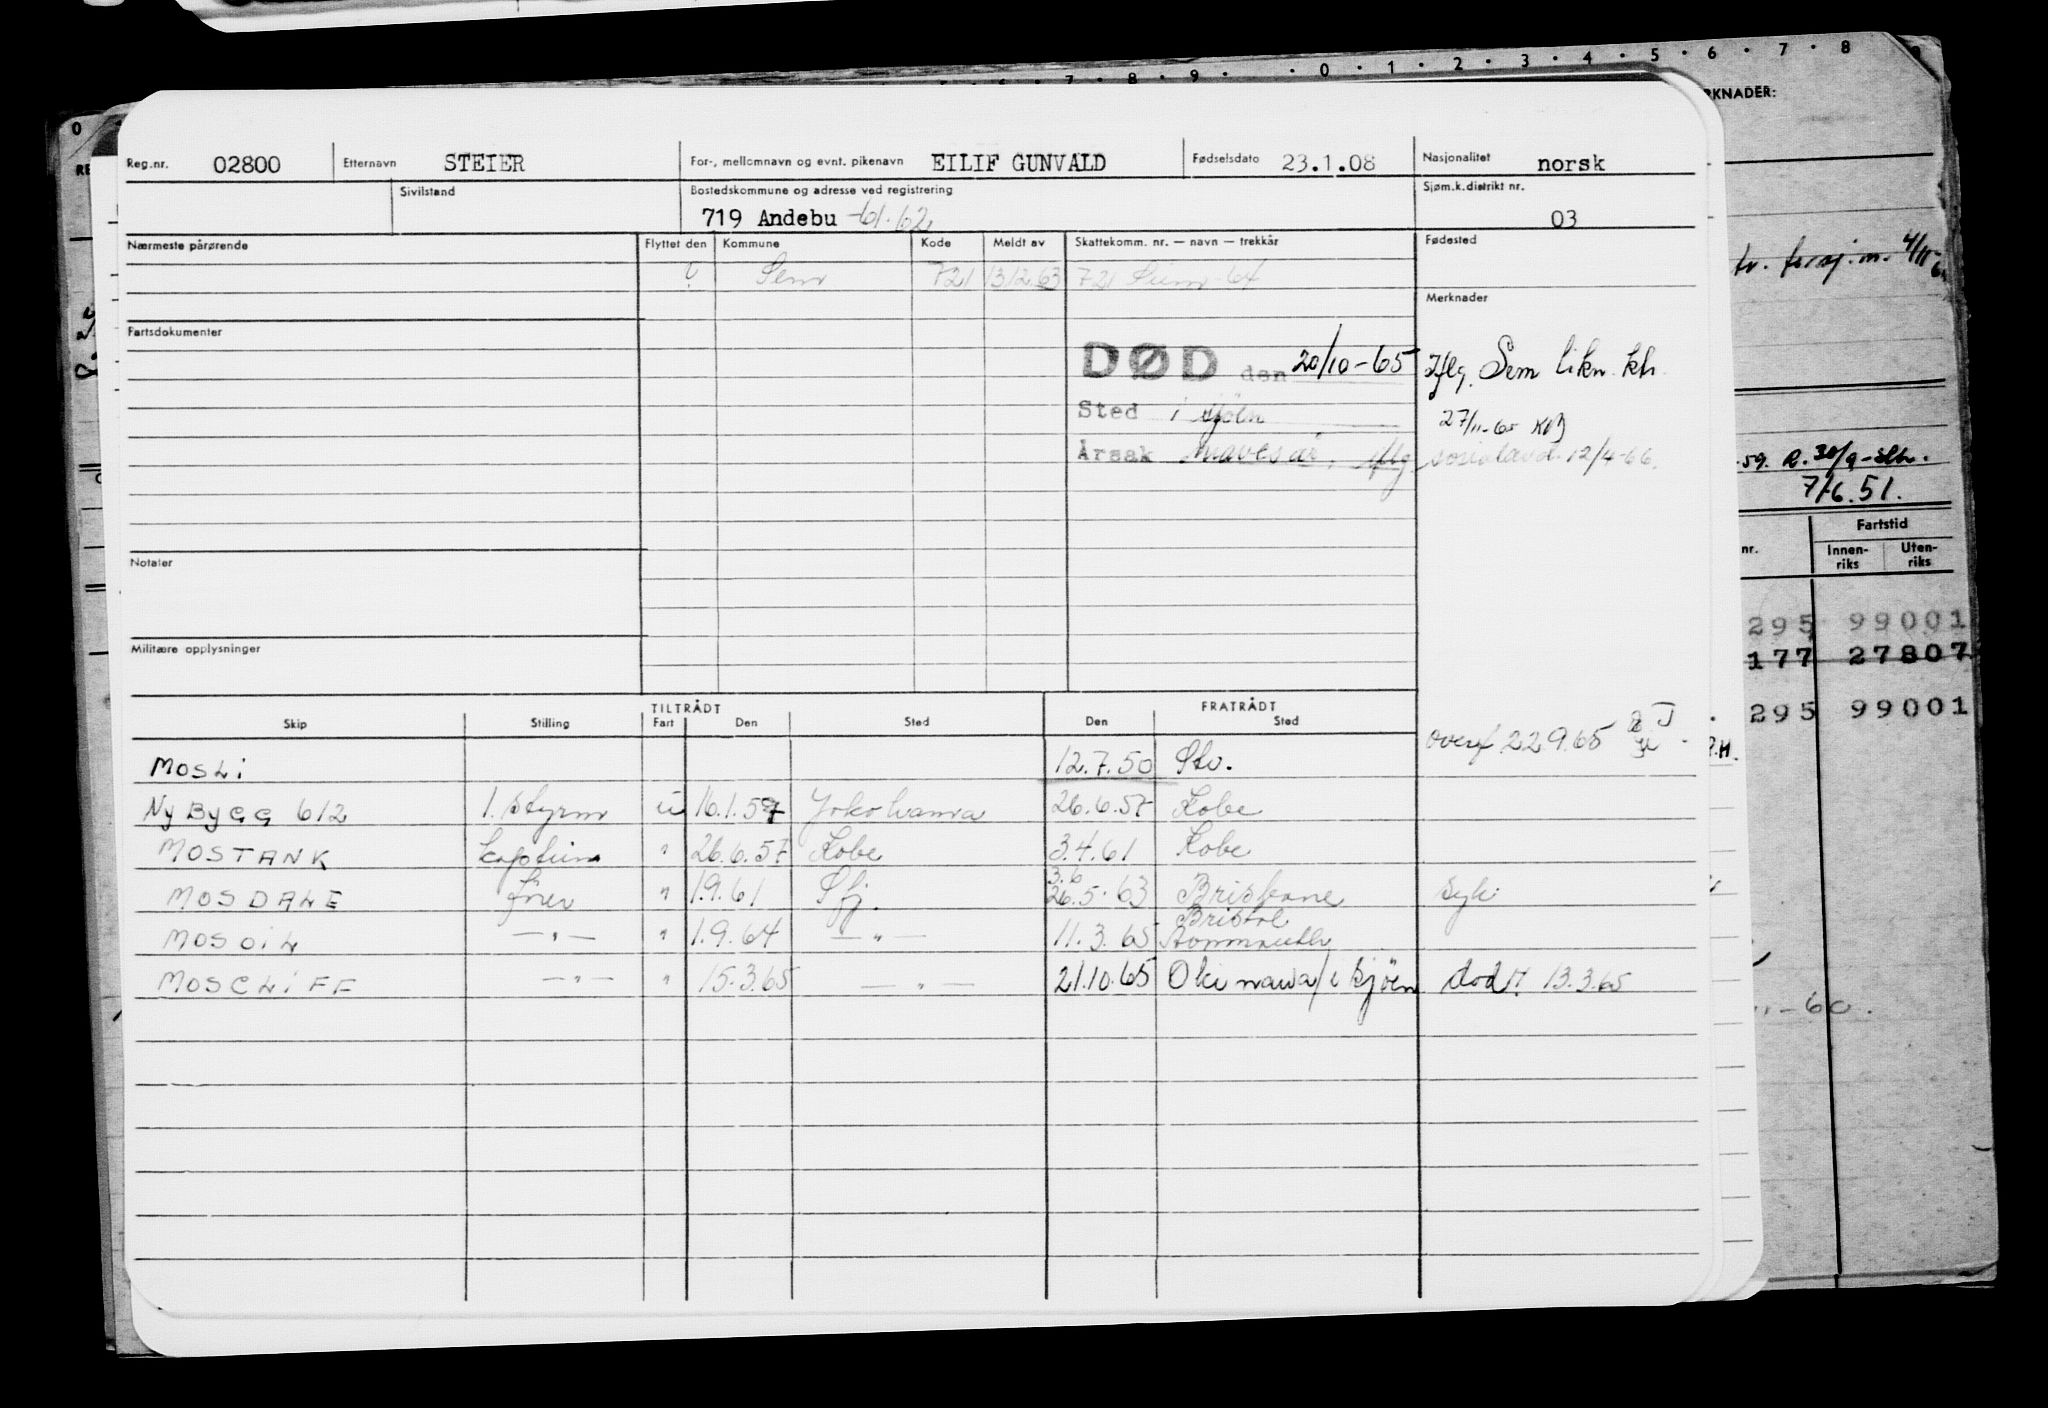 0 · 1 · 2 · 3 · 4 · 5 · 6 · 7 · 8
RKNADER:
Reg.nr. 02800 Etternavn STEIER For-, mellomnavn og evnt. pikenavn EILIF GUNVALD Fødselsdato 23.1.08 Nasjonalitet norsk
Sivilstand Bostedskommune og adresse ved registrering Sjøm.k.distrikt nr.
719 Andebu -61-62 03
Nærmeste pårørende Flyttet den Kommune Kode Meldt av Skattekomm. nr. — navn — trekkår Fødested
? Sem 721 13/12.63 721 Sem - 64
Merknader
Fartsdokumenter
DØD den 20/10-65 Iflg. Sem likn. ktr.
Sted i sjøen 27/11-65
Årsak mavesår, iflg sosialavd. 12/4-66.
59. R. 30/9
7/6.51.
Notater
Militære opplysninger
nr. Fartstid
Innen-riks Uten-riks
295 99001
177 27807
295 99001
TILTRÅDT FRATRÅDT
Skip Stilling Fart Den Sted Den Sted
overf 22.9.65
MOSLI 12.7.50 Stv.
NYBYGG 612 1. styrm u 16.1.57 Yokohama 26.6.57 Kobe
MOSTANK kaptein " 26.6.57 Kobe 3.4.61 Kobe
MOSDALE fører " 1.9.61 Sfj. 3.6 26.5.63 Brisbane syk
MOSOIL — " — " 1.9.64 — " — 11.3.65 Bristol
MOSCLIFF — " — " 15.3.65 — " — 21.10.65 Okinawa / i sjøen død 13.3.65